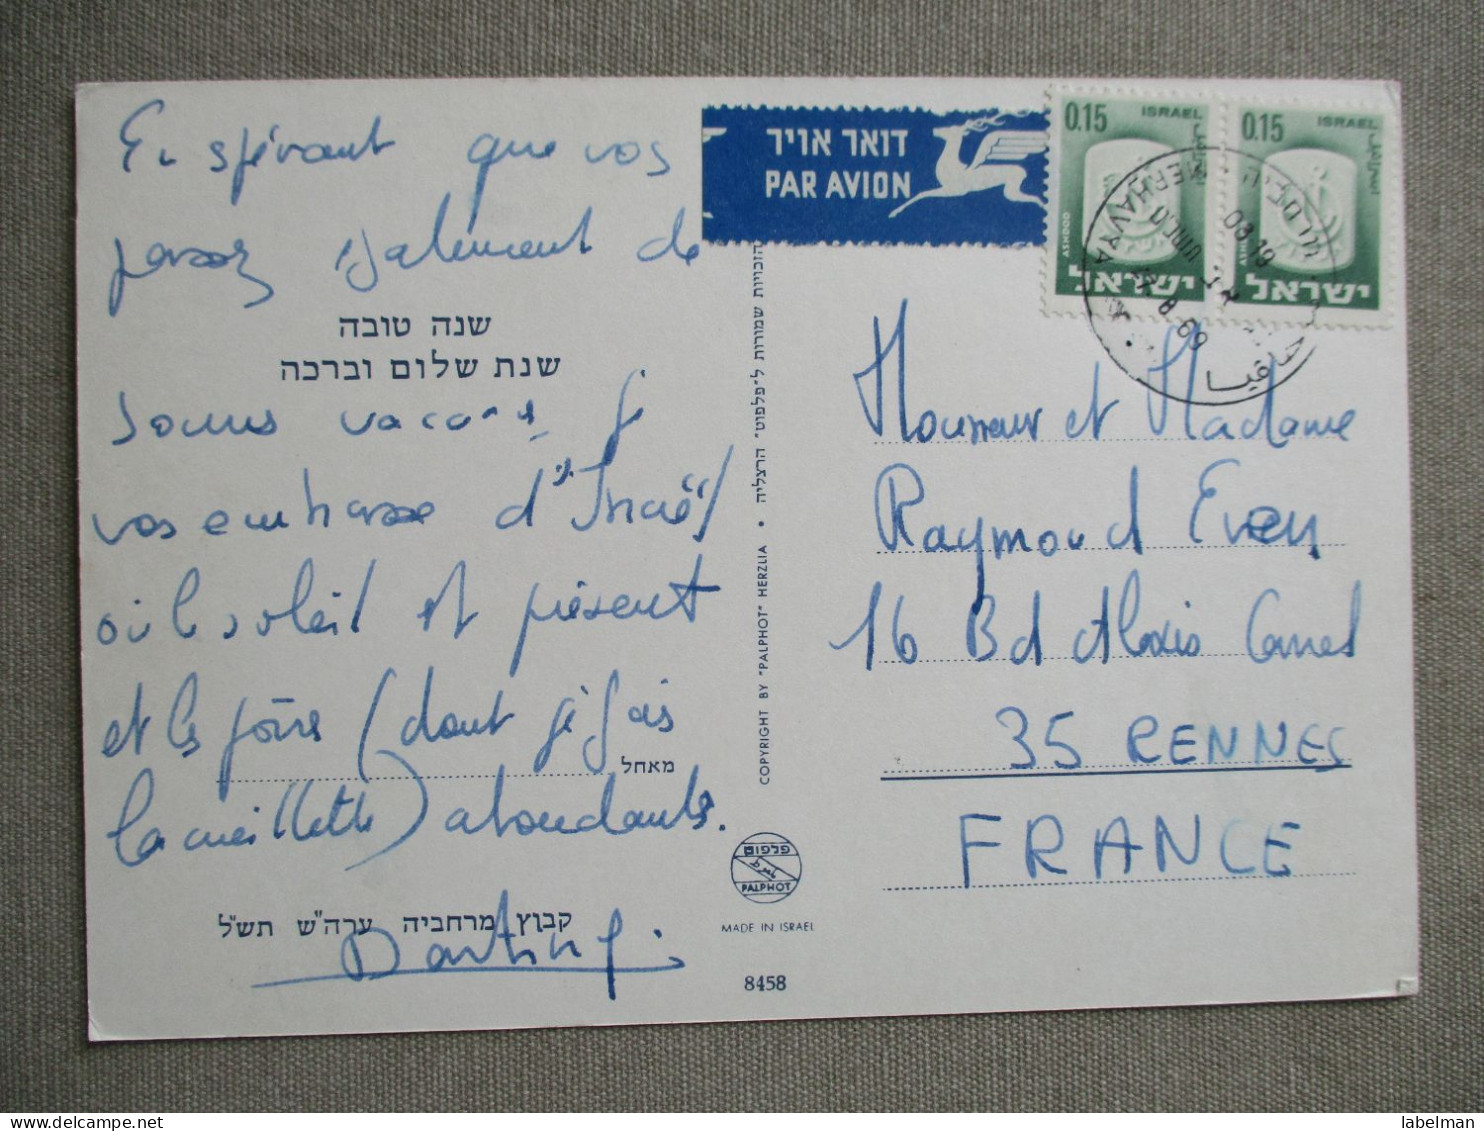 En espérant que vos
passez également de
שנה טובה
שנת שלום וברכה
bonnes vacances, je
vous embrasse d'Israël
où le soleil est présent
et les poires (dont je fais
מאחל
la cueillette) abondantes.
קבוץ מרחביה ערה"ש תש"ל
הזכויות שמורות ל"פלפוט" הרצליה • COPYRIGHT BY "PALPHOT" HERZLIA
פלפוט
PALPHOT
MADE IN ISRAEL
8458
דואר אויר
PAR AVION
0.15 ISRAEL
ASHDOD
ישראל
0.15 ISRAEL
ישראל
MERHAVYA
Monsieur et Madame
Raymond Even
16 Bd Alexis Carrel
35 RENNES
FRANCE
labelman
www.delcampe.net